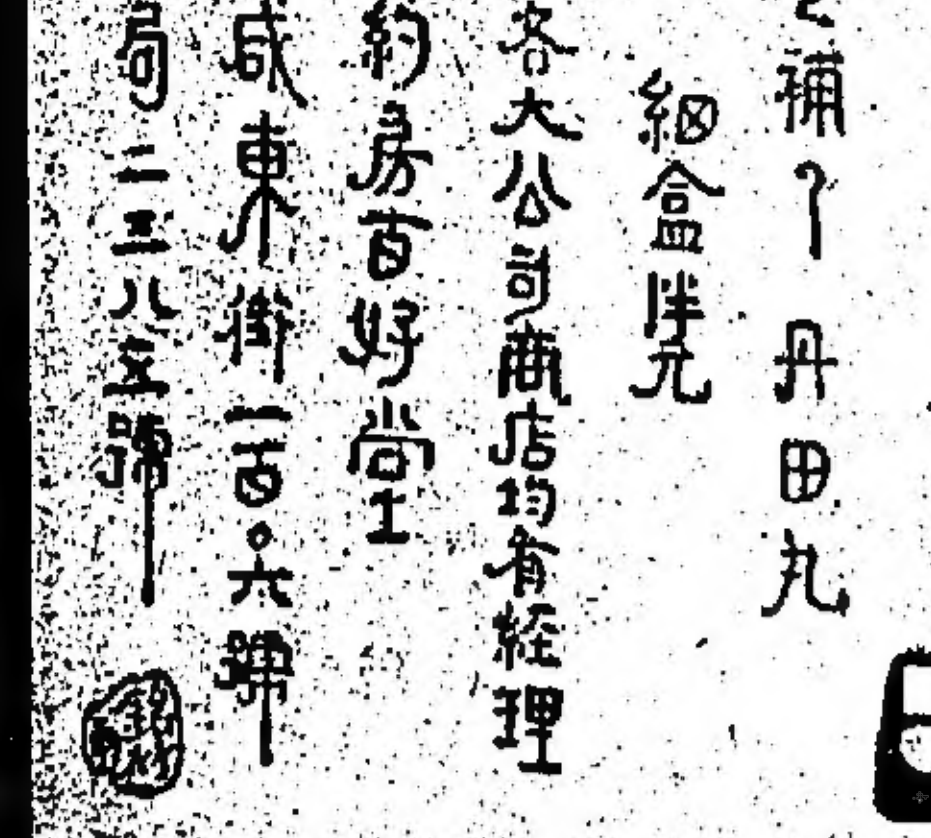 補丹田丸
細盒胖元
各大公司商店均有経理
葯房百好堂
咸東街一百〇六號
局二三八五號